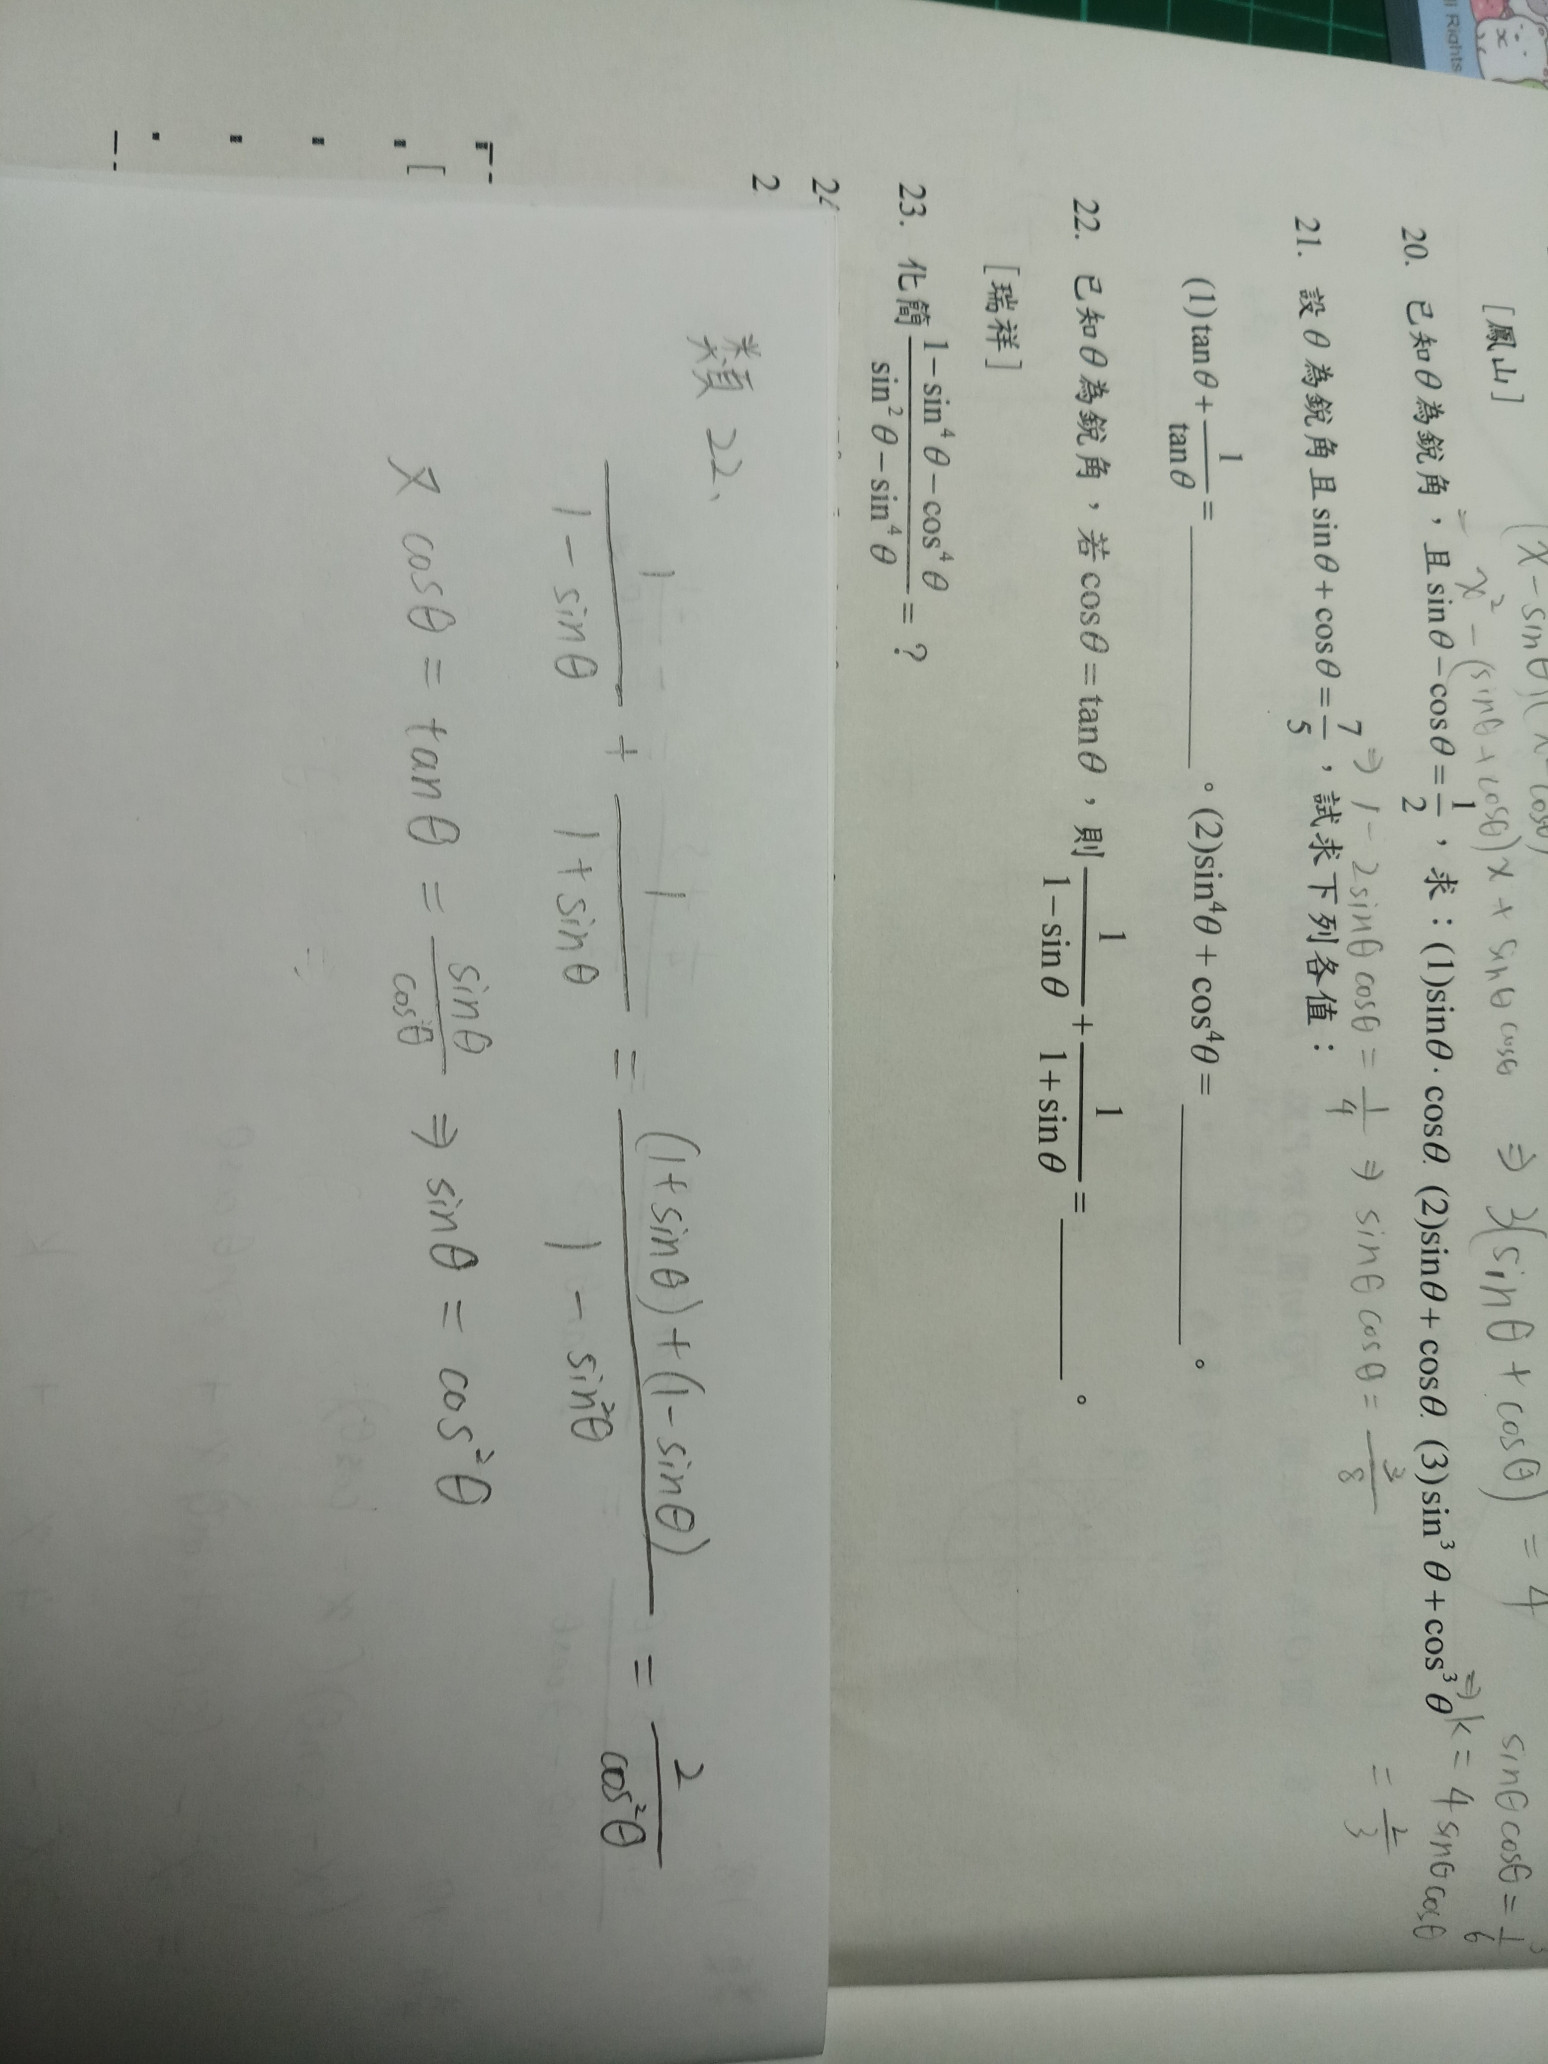 ll Rights
[鳳山]
(x-sinθ)(x-cosθ)
= x²-(sinθ+cosθ)x+sinθcosθ ⇒ 3(sinθ+cosθ)=4
sinθcosθ=
20. 已知θ為銳角，且sinθ-cosθ=1/2，求：(1)sinθ·cosθ. (2)sinθ+cosθ. (3)sin³θ+cos³θ
⇒k=4sinθcosθ
⇒1-2sinθcosθ=1/4⇒sinθcosθ=3/8
=2/3
21. 設θ為銳角且sinθ+cosθ=7/5，試求下列各值：
(1)tanθ+1/tanθ=________。(2)sin⁴θ+cos⁴θ=________。
22. 已知θ為銳角，若cosθ=tanθ，則1/(1-sinθ)+1/(1+sinθ)=________。
[瑞祥]
23. 化簡(1-sin⁴θ-cos⁴θ)/(sin²θ-sin⁴θ)=？
2
類22、
1/(1-sinθ)+1/(1+sinθ)=((1+sinθ)+(1-sinθ))/(1-sin²θ)=2/cos²θ
又cosθ=tanθ=sinθ/cosθ⇒sinθ=cos²θ